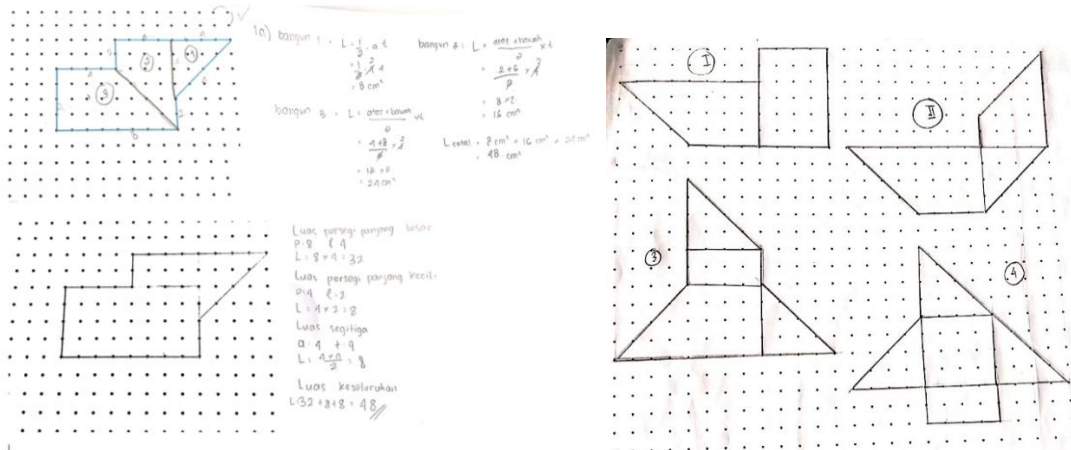 1a) bangun 1 = L = 1/2 . a t
= 1/2 . 4 . 4
= 8 cm²
bangun 2 : L = atas + bawah / 2 x t
= 2+6 / 2 x 4
= 8 x 2
= 16 cm²
bangun 3 = L = atas + bawah / 2 xt
= 4+8 / 2 x 4
= 12 x 2
= 24 cm²
L total = 8 cm² + 16 cm² + 24 cm²
= 48 cm²
1
2
3
Luas persegi panjang besar
P=8 l 4
L = 8 x 4 = 32
Luas persegi panjang kecil
P=4 l=2
L = 4 x 2 = 8
Luas segitiga
a 4 t 4
L = 4x4 / 2 = 8
Luas keseluruhan
L=32+8+8 = 48
I
II
3
4